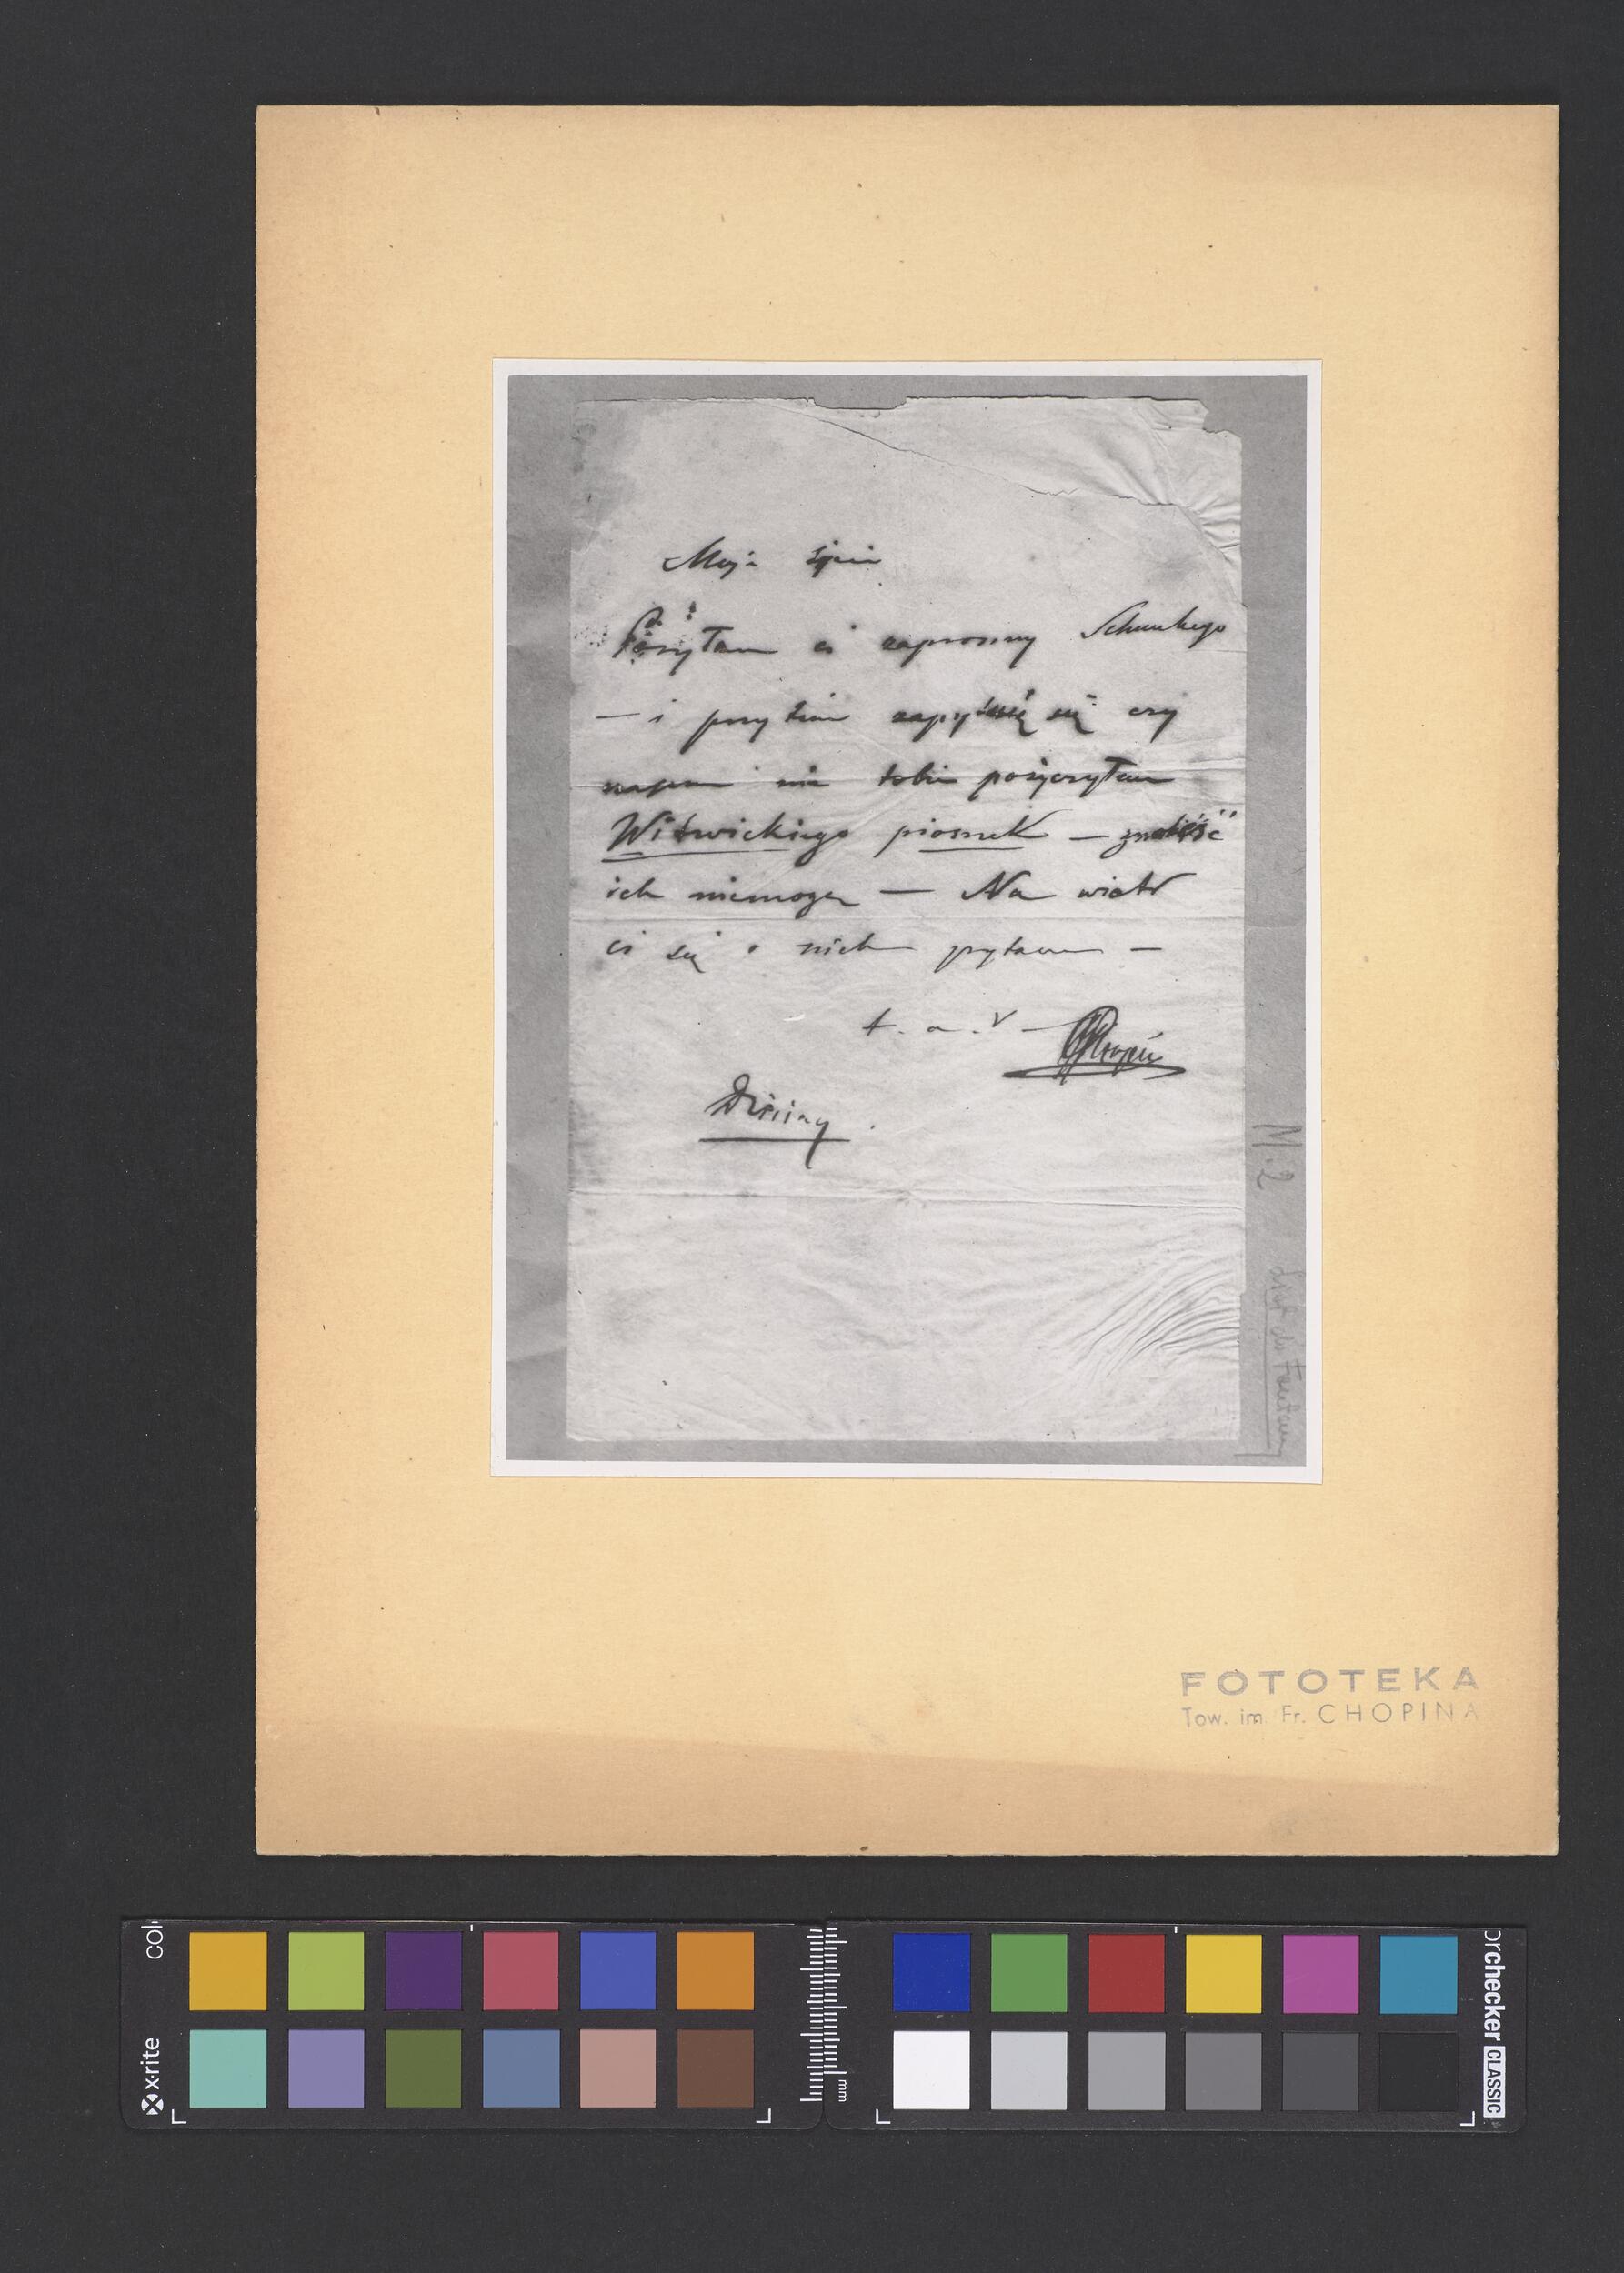 Moje życie
Posyłam ci zaprosiny Schunkego
— i przytem zapytuię się czy
czasem nie tobie pożyczyłem
Witwickiego piosnek — znaleść
ich niemogę — Na wiatr
ci się o nich pytam —
t. a. v — Chopin
Dzisiay.
M. 2
List do Fontany
FOTOTEKA
Tow. im. Fr. CHOPINA
x·rite
colorchecker CLASSIC
mm